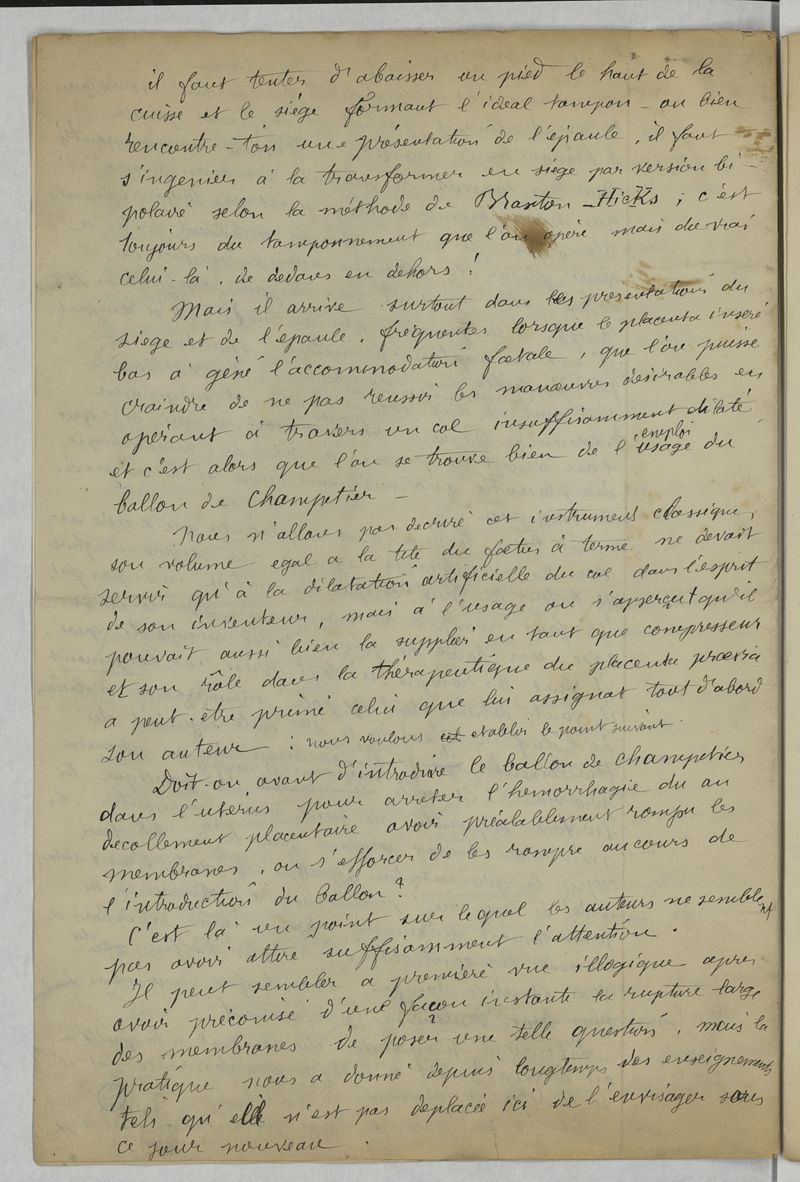 il faut tenter d'abaisser un pied le haut de la
cuisse et le siége formant l'ideal tampon - ou bien
rencontre-t'on une présentation de l'épaule, il faut
s'ingenier à la transformer en siège par version bi-
polaire selon la méthode de Braxton-Hicks ; c'est
toujours du tamponnement que l'on opére mais du vrai
celui-là, de dedans en dehors !
Mais il arrive surtout dans les presentations du
siege et de l'épaule, fréquentes lorsque le placenta inséré
bas a gêné l'accommodation fœtale, que l'on puisse
craindre de ne pas reussir les manœuvres désirables en
opérant à travers un col insuffisamment dilaté
et c'est alors que l'on se trouve bien de l'usage emploi du
ballon de Champetier -
Nous n'allons pas decrire cet instrument classique,
son volume egal a la tête du fœtus à terme ne devait
servir qu'à la dilatation artificielle du col dans l'esprit
de son inventeur, mais à l'usage on s'aperçut qu'il
pouvait aussi bien la suppléer en tant que compresseur
et son rôle dans la thérapeutique du placenta prævia
a peut-etre primé celui que lui assignat tout d'abord
son auteur : nous voulons etablir le point suivant.
Doit-on avant d'introduire le ballon de Champetier
dans l'utérus pour arreter l'hemorrhagie du au
decollement placentaire avoir préalablement rompu les
membranes, ou s'efforcer de les rompre au cours de
l'introduction du ballon ?
C'est là un point sur lequel les auteurs ne semblent
pas avoir attiré suffisamment l'attention.
Il peut sembler a première vue illogique apres
avoir préconisé d'une façon instante la rupture large
des membranes de poser une telle question, mais la
pratique nous a donné depuis longtemps des enseignements
tels qu'elle n'est pas deplacée ici de l'envisager sous
ce jour nouveau.